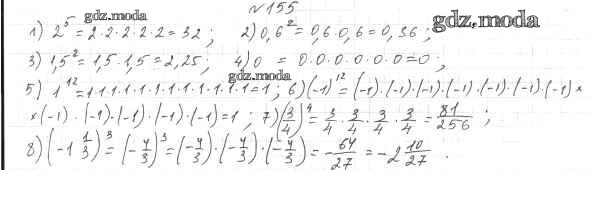 №155
1) 2⁵ = 2·2·2·2·2 = 32; 2) 0,6² = 0,6·0,6 = 0,36;
gdz.moda
gdz.moda
3) 1,5² = 1,5·1,5 = 2,25; 4) 0 = 0·0·0·0·0·0 = 0;
gdz.moda
5) 1¹² = 1·1·1·1·1·1·1·1·1·1·1·1 = 1; 6) (-1)¹² = (-1)·(-1)·(-1)·(-1)·(-1)·(-1)·(-1)×
×(-1)·(-1)·(-1)·(-1)·(-1) = 1; 7) (3/4)⁴ = 3/4·3/4·3/4·3/4 = 81/256;
8) (-1 1/3)³ = (-4/3)³ = (-4/3)·(-4/3)·(-4/3) = -64/27 = -2 10/27.